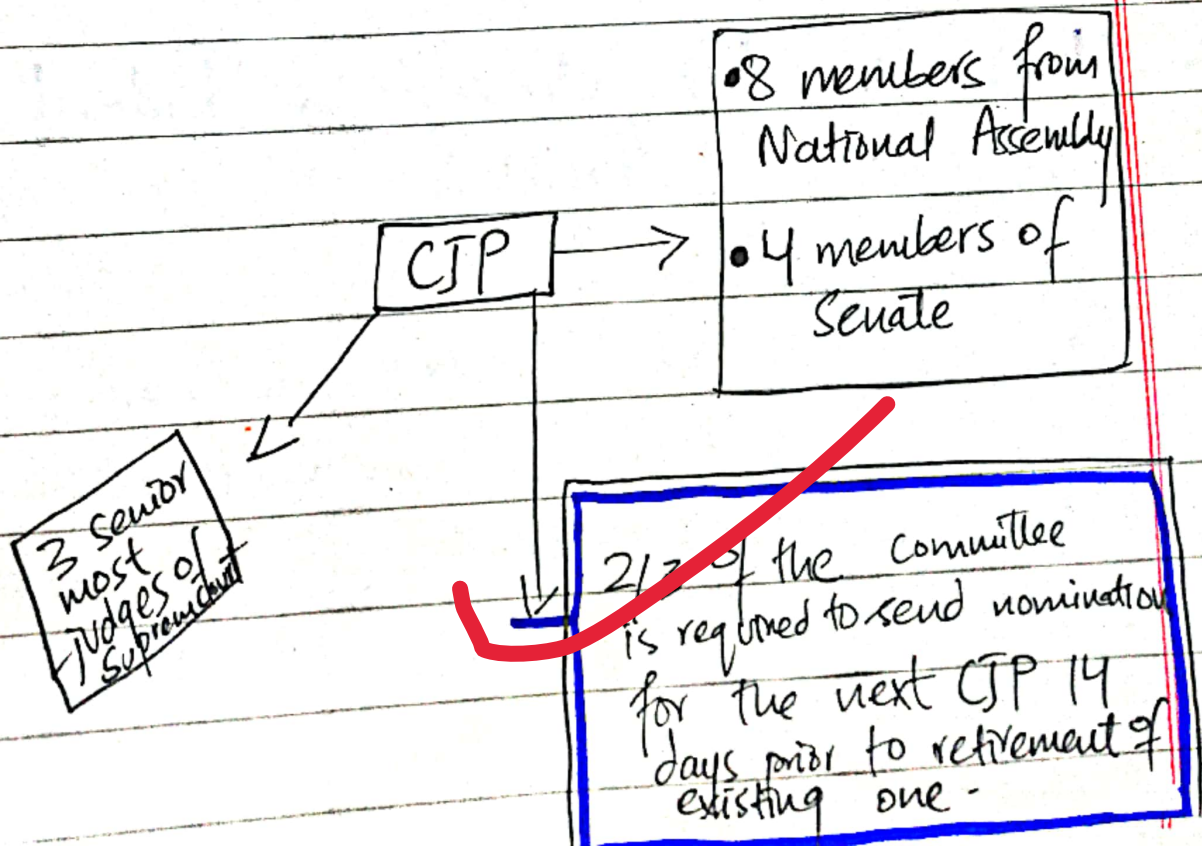 •8 members from
National Assembly
•4 members of
Senate
CJP
3 senior
most
judges of
Supreme Court
2/3 of the committee
is required to send nomination
for the next CJP 14
days prior to retirement of
existing one.